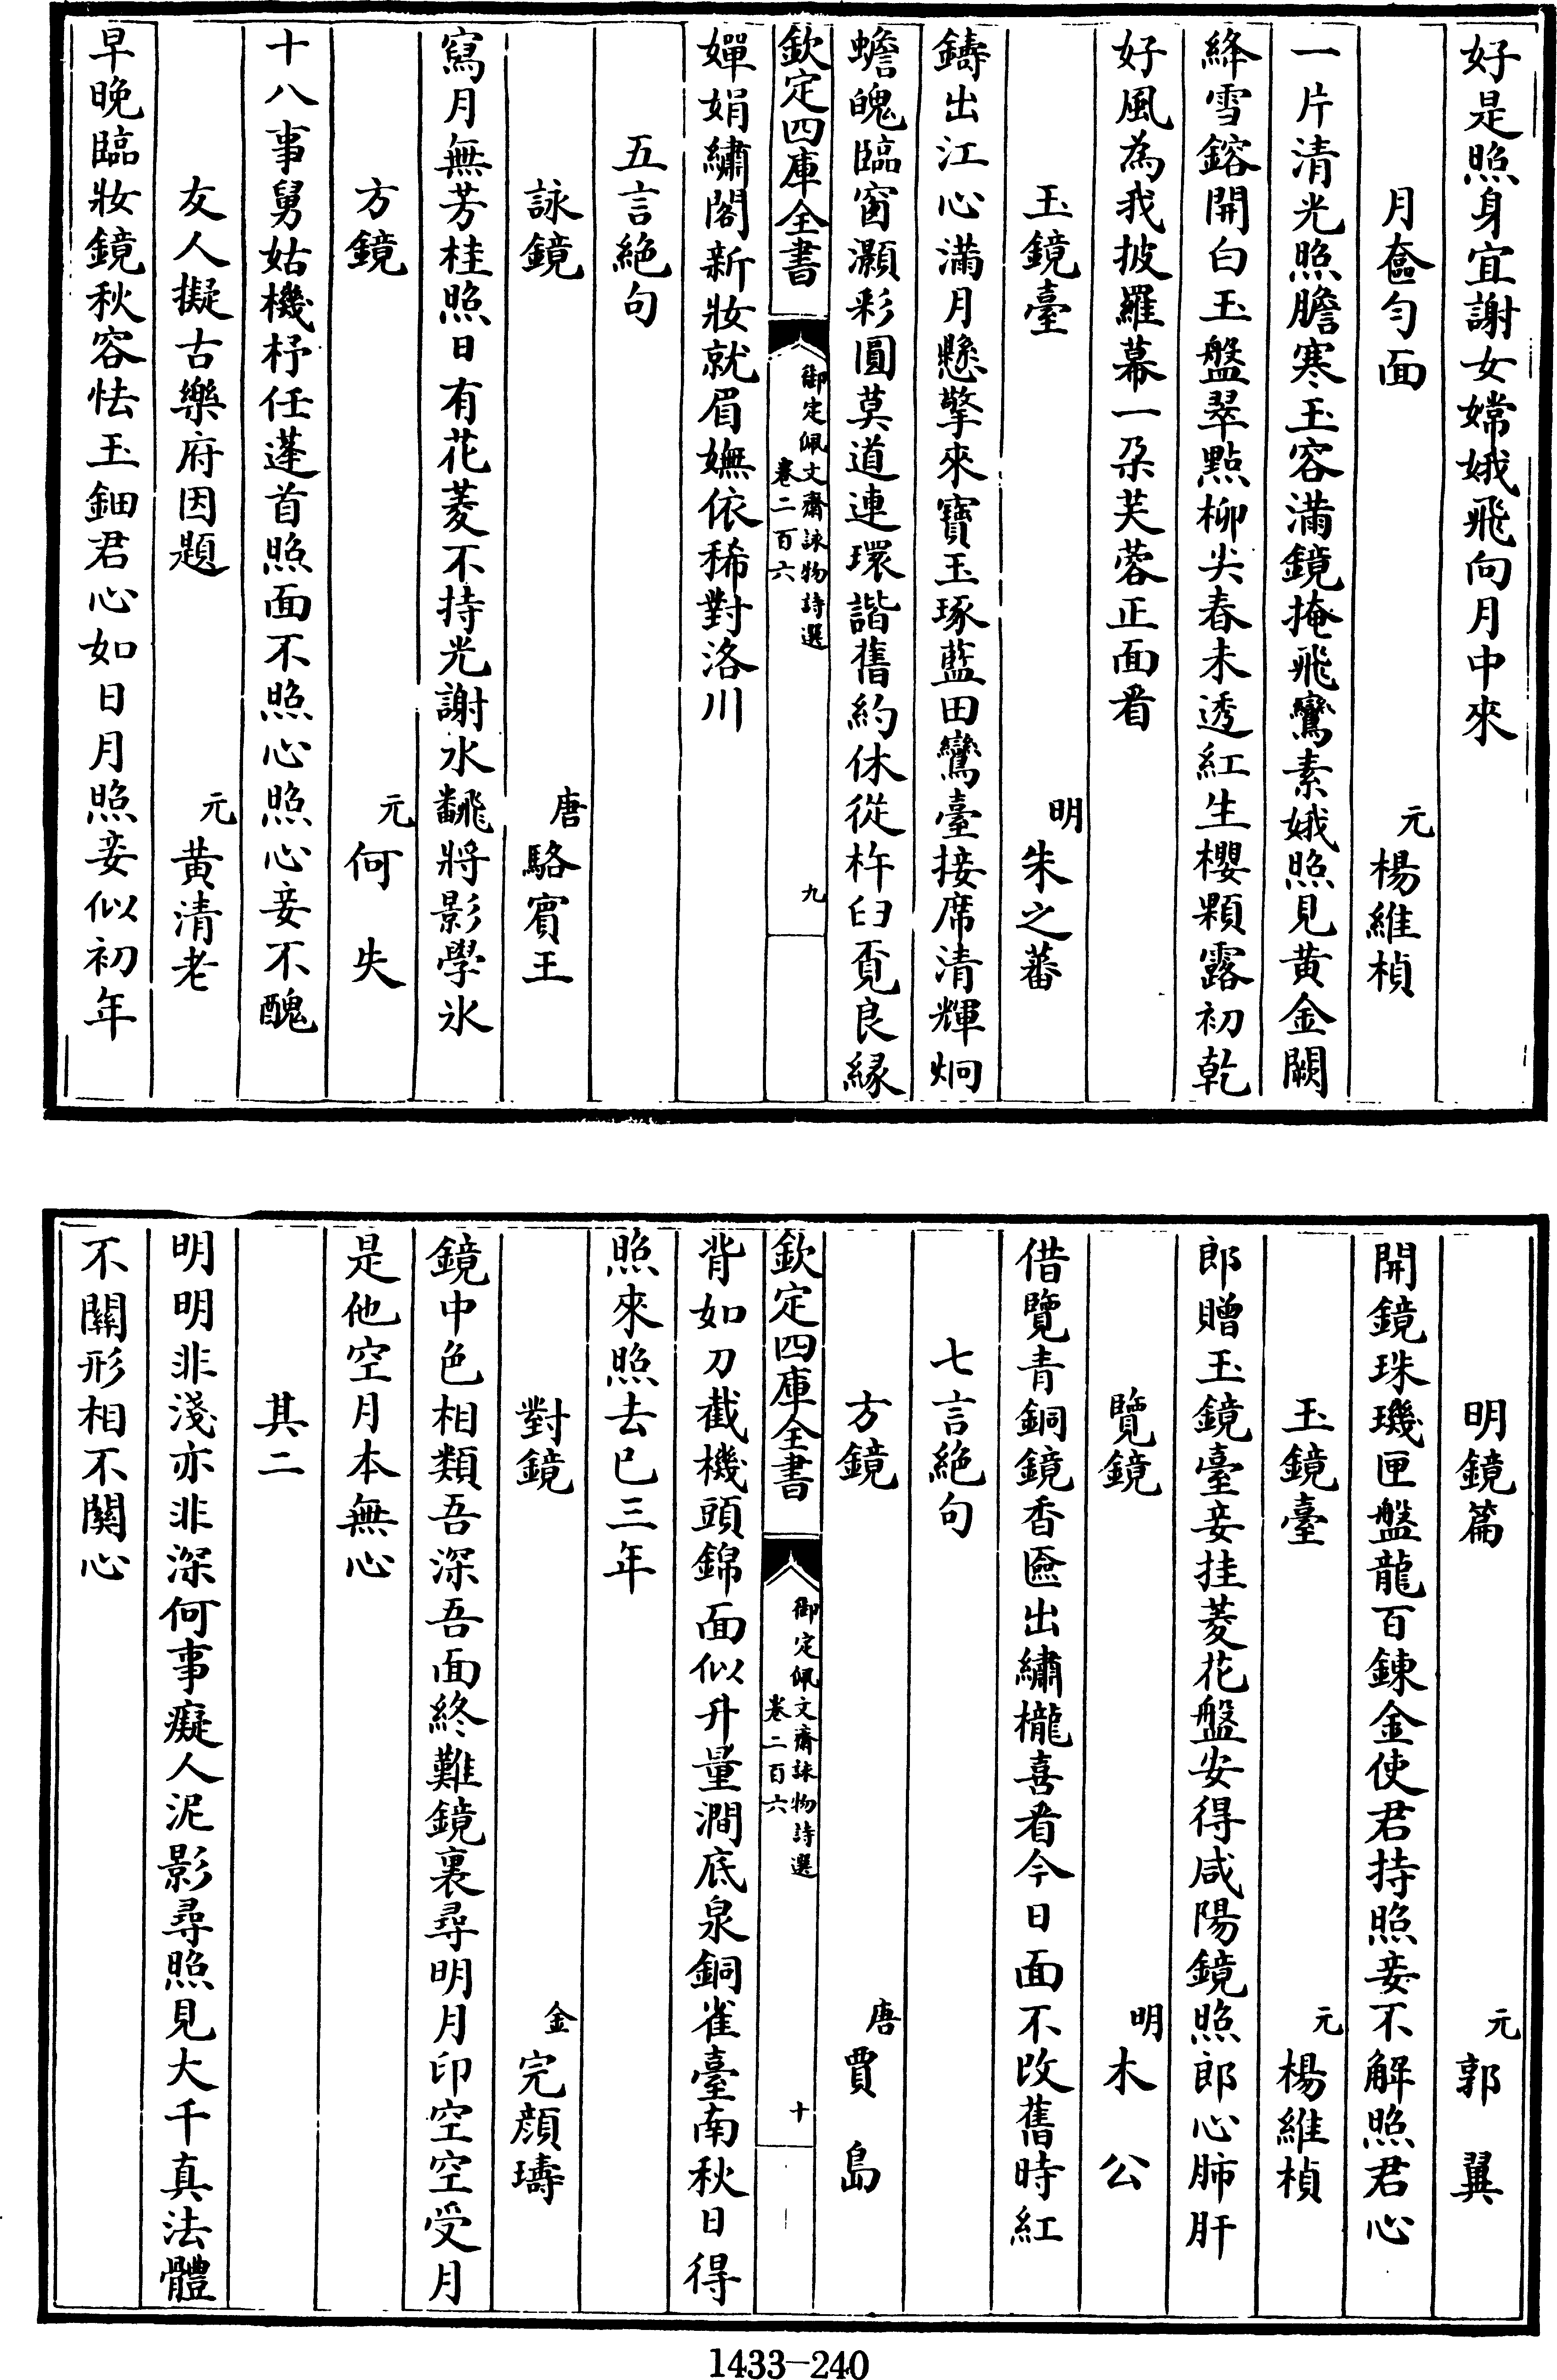 好是照身宜謝女嫦娥飛向月中來
月奩勻面
元
楊維楨
一片清光照膽寒玉容滿鏡掩飛鸞素娥照見黃金闕
絳雪鎔開白玉盤翠點柳尖春未透紅生櫻顆露初乾
好風為我披羅幕一朶芙蓉正面看
玉鏡臺
明
朱之蕃
鑄出江心滿月懸擎來寶玉琢藍田鸞臺接席清輝炯
蟾魄臨窗灝彩圓莫道連環諧舊約休從杵臼覓良緣
欽定四庫全書
御定佩文齋詠物詩選
卷二百六
九
嬋娟繡閣新妝就眉嫵依稀對洛川
五言絕句
詠鏡
唐
駱賓王
寫月無芳桂照日有花菱不持光謝水翻將影學氷
方鏡
元
何失
十八事舅姑機杼任蓬首照面不照心照心妾不醜
友人擬古樂府因題
元
黃清老
早晚臨妝鏡秋容怯玉鈿君心如日月照妾似初年
明鏡篇
元
郭翼
開鏡珠璣匣盤龍百鍊金使君持照妾不解照君心
玉鏡臺
元
楊維楨
郎贈玉鏡臺妾挂菱花盤安得咸陽鏡照郎心肺肝
覽鏡
明
木公
借覽青銅鏡香匳出繡櫳喜看今日面不改舊時紅
七言絕句
方鏡
唐
賈島
欽定四庫全書
御定佩文齋詠物詩選
卷二百六
十
背如刀截機頭錦面似升量澗底泉銅雀臺南秋日得
照來照去已三年
對鏡
金
完顔璹
鏡中色相類吾深吾面終難鏡裏尋明月印空空受月
是他空月本無心
其二
明明非淺亦非深何事癡人泥影尋照見大千真法體
不關形相不關心
1433—240